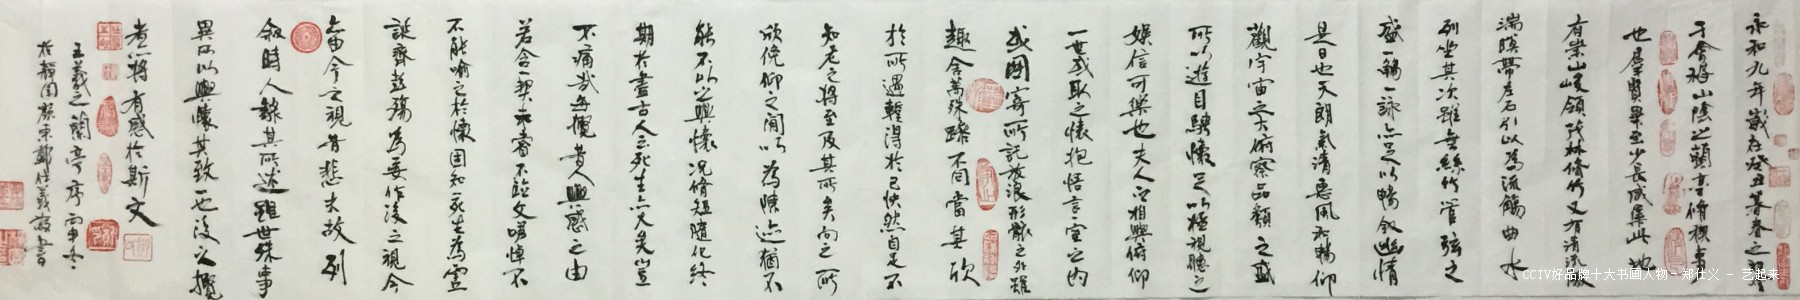 永和九年歲在癸丑暮春之初會
于會稽山陰之蘭亭脩禊事
也羣賢畢至少長咸集此地
有崇山峻領茂林脩竹又有清流激
湍暎帶左右引以為流觴曲水
列坐其次雖無絲竹管弦之
盛一觴一詠亦足以暢敘幽情
是日也天朗氣清惠風和暢仰
觀宇宙之大俯察品類之盛
所以遊目騁懷足以極視聽之
娛信可樂也夫人之相與俯仰
一世或取之懷抱悟言一室之內
或因寄所託放浪形骸之外雖
趣舍萬殊躁不同當其欣
於所遇蹔得於己快然自足不
知老之將至及其所之
欣俛仰之閒以為陳迹猶不
能不以之興懷況脩短隨化終
期於盡古人云死生亦大矣豈
不痛哉每攬昔人興感之由
若合一契未嘗不臨文嗟悼不
不能喻之於懷固知一死生為虛
誕齊彭殤為妄作後之視今
亦由今之視昔悲夫故列
敘時人錄其所述雖世殊事
異所以興懷其致一也後之攬
者亦將有感於斯文
王羲之蘭亭序丙申冬
於靜園齋鄭仕義敬書
CCTV好品牌十大书画人物－郑仕义 － 艺起来